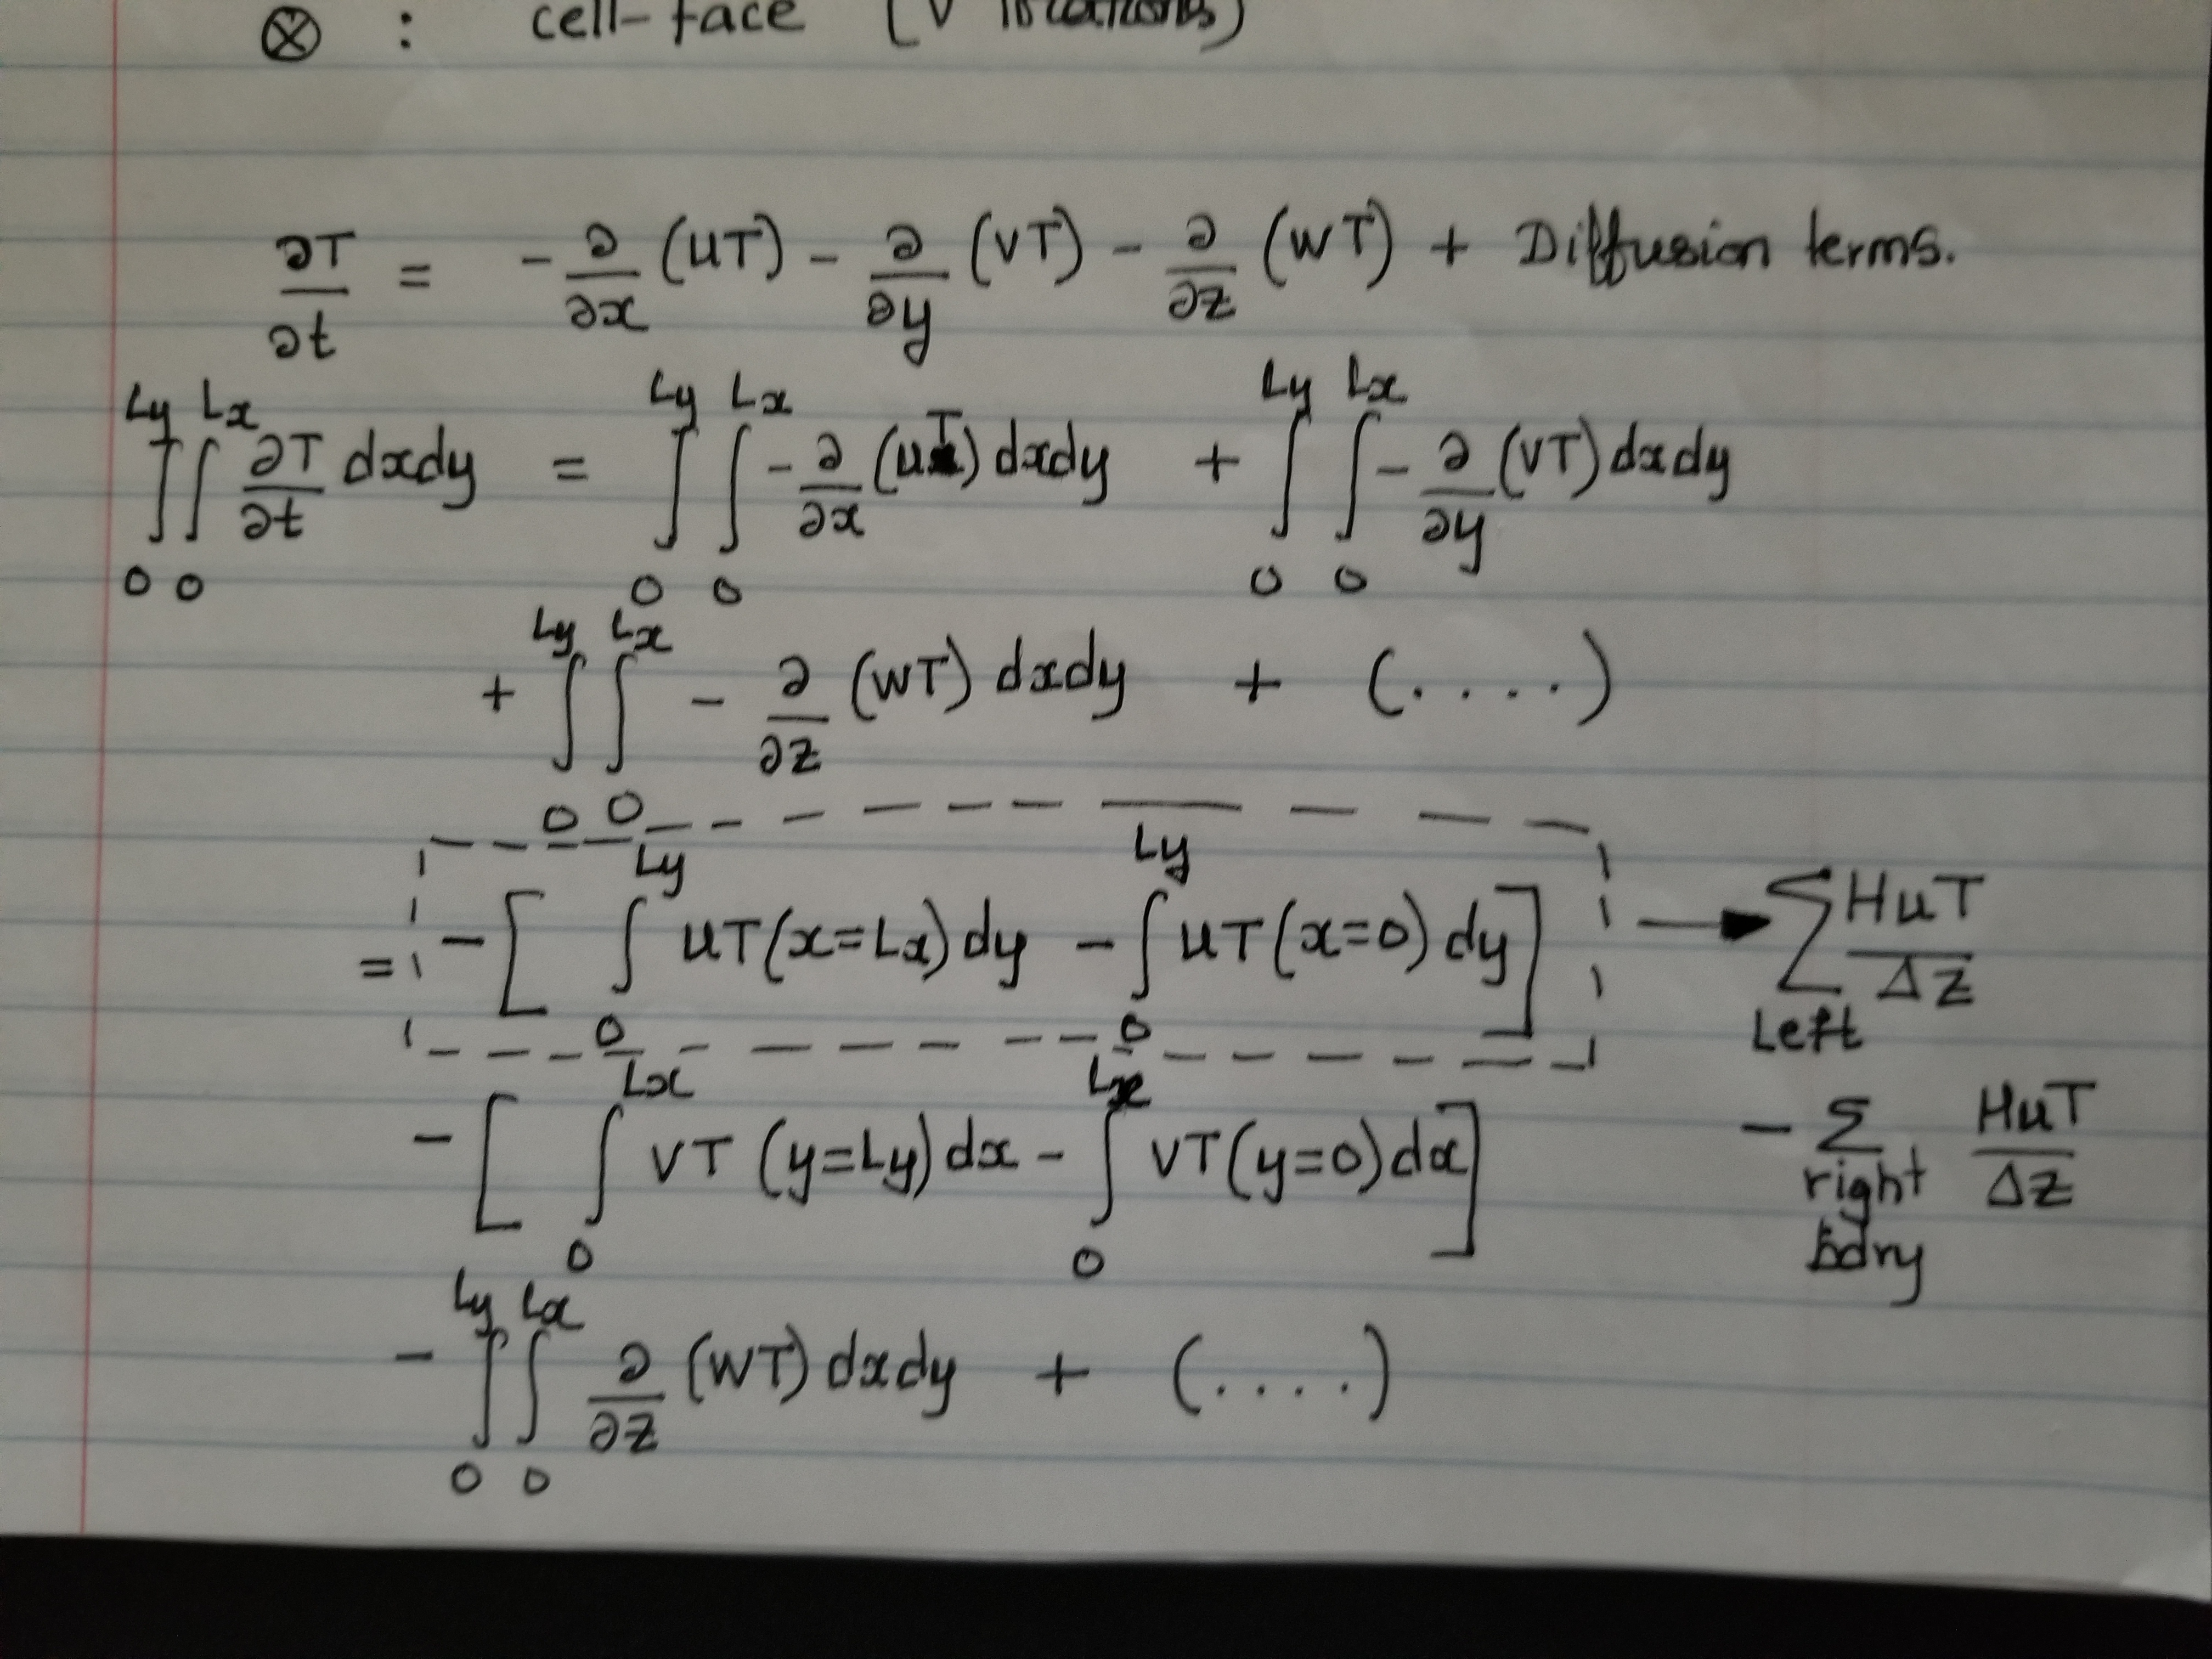 ⊗ : cell-face (V locations)
∂T/∂t = - ∂/∂x (uT) - ∂/∂y (vT) - ∂/∂z (wT) + Diffusion terms.
∫₀^Ly ∫₀^Lx ∂T/∂t dxdy = ∫₀^Ly ∫₀^Lx - ∂/∂x (uT) dxdy + ∫₀^Ly ∫₀^Lx - ∂/∂y (vT) dxdy
+ ∫₀^Ly ∫₀^Lx - ∂/∂z (wT) dxdy + (....)
= - [ ∫₀^Ly uT(x=Lx) dy - ∫₀^Ly uT(x=0) dy ] → Σ Left HuT/Δz
- [ ∫₀^Lx vT (y=Ly) dx - ∫₀^Lx vT(y=0) dx ] - Σ right bdry HuT/Δz
- ∫₀^Ly ∫₀^Lx ∂/∂z (wT) dxdy + (....)